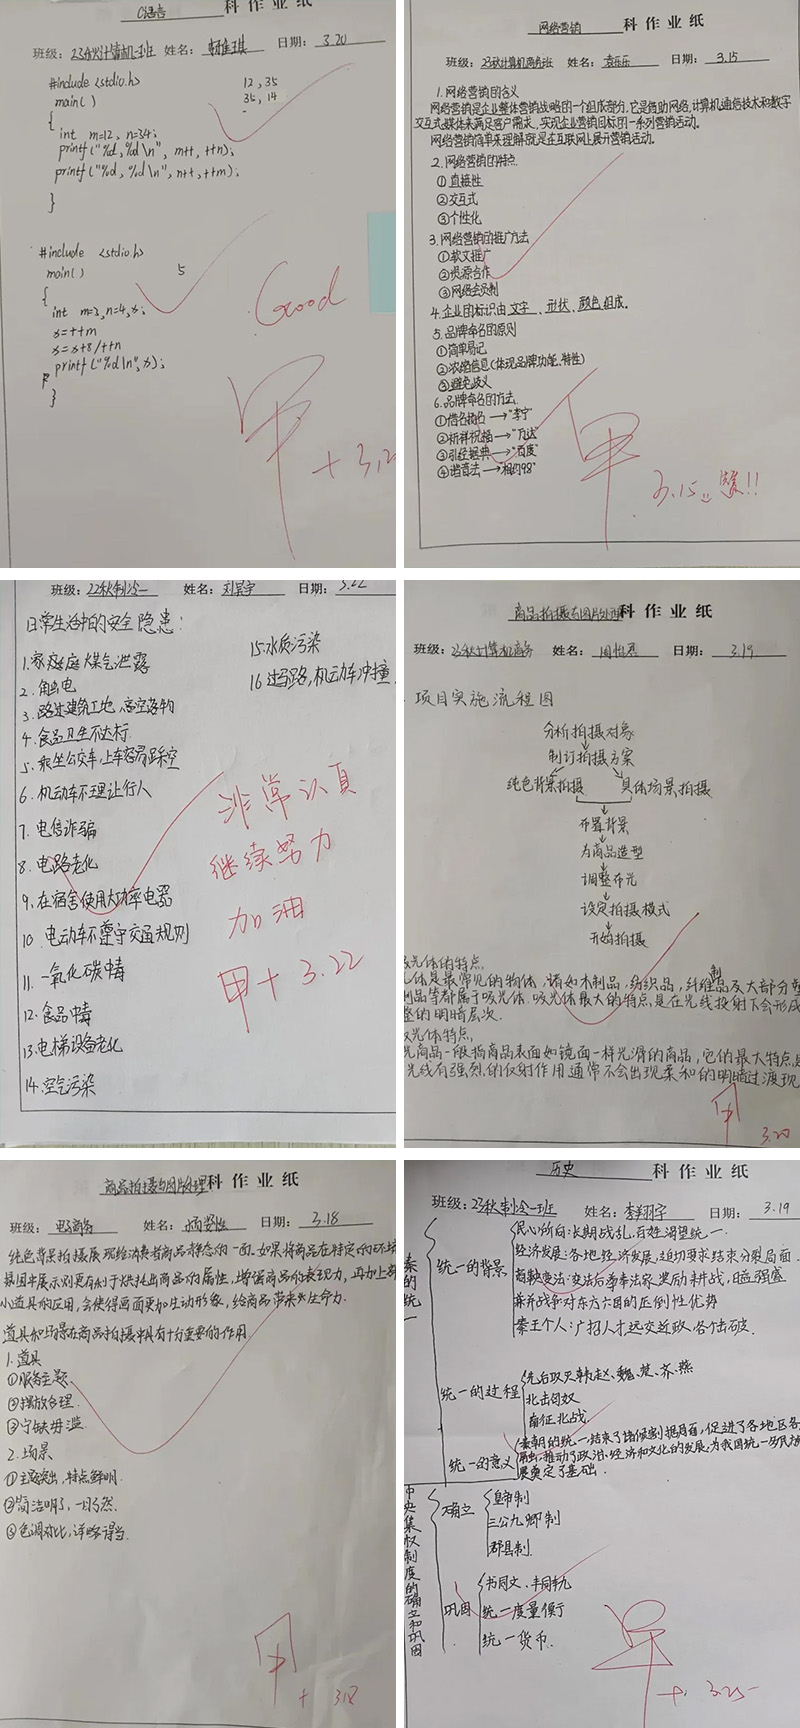 C语言 科 作 业 纸
班级: 23秋计算机一班 姓名: 日期: 3.20
#include <stdio.h> 12, 35
main( ) 35, 14
{
int m=12, n=34;
printf ("%d, %d \n", m++, ++n);
printf ("%d, %d \n", n++, ++m);
}
#include <stdio.h>
main( ) 5
{
int m=3, n=4, x;
x=++m
x=x+8/++n
printf ("%d \n", x);
}
Good
甲
+ 3.2
网络营销 科 作 业 纸
班级: 23秋计算机商务班 姓名: 袁乐乐 日期: 3.15
1. 网络营销的含义
网络营销是企业整体营销战略的一个组成部分,它是借助网络,计算机通信技术和数字
交互式媒体来满足客户需求、实现企业营销目标的一系列营销活动。
网络营销简单来理解就是在互联网上展示营销活动。
2. 网络营销的特点
①直接性
②交互式
③个性化
3. 网络营销的推广方法
①软文推广
②资源合作
③网络会员制
4. 企业的标识由文字、形状、颜色组成。
5. 品牌命名的原则
①简单易记
②浓缩信息(体现品牌功能、特性)
③避免歧义
6. 品牌命名的方法
①借名扬名→"李宁"
②祈祥祝福→"万达"
③引经据典→"百度"
④谐音法→"相约98"
甲
3.15 !!
班级: 22秋制冷一 姓名: 刘昊宇 日期: 3.22
日常生活中的安全隐患:
1.家庭庭煤气泄露
2. 触电
3. 路过建筑工地,高空落物
4. 食品卫生不达标
5. 乘坐公交车,上车容易踩空
6. 机动车不理让行人
7. 电信诈骗
8. 电路老化
9. 在宿舍使用大功率电器
10. 电动车不遵守交通规则
11. 一氧化碳中毒
12. 食品中毒
13. 电梯设备老化
14. 空气污染
15. 水质污染
16 过马路,机动车冲撞
非常认真
继续努力
加油
甲+ 3.22
商品拍摄与图片处理 科 作 业 纸
班级: 23秋计算机商务 姓名: 周怡君 日期: 3.19
项目实施流程图
分析拍摄对象
制订拍摄方案
纯色背景拍摄 具体场景拍摄
布置背景
为商品造型
调整布光
设定拍摄模式
开始拍摄
吸光体的特点
光体是最常见的物体,诸如木制品,纺织品,纤维制品及大部分塑
制品等都属于吸光体.吸光体最大的特点是在光线投射下会形成
整的明暗层次.
反光体特点,
光商品一般指商品表面如镜面一样光滑的商品,它的最大特点是
光线有强烈的反射作用通常不会出现柔和的明暗过渡现
甲
3.20
商品拍摄与图片处理 科 作 业 纸
班级: 电子商务 姓名: 日期: 3.18
纯色背景拍摄展现给消费者商品静态的一面.如果将商品在特定的环境
景图中展示则更有利于烘托出商品的属性,增强商品的表现力,再加上部
小道具的应用,会使得画面更加生动形象,给商品带来生命力.
道具和场景在商品拍摄中具有十分重要的作用
1. 道具
①服务主题.
②摆放合理.
③宁缺毋滥
2. 场景
①主题突出,特点鲜明.
②简洁明了,一目了然.
③色调对比,详略得当.
甲
+ 3.18
历史 科 作 业 纸
班级: 23秋制冷一班 姓名: 李翔宇 日期: 3.19
秦的统一
统一的背景
民心所向:长期战乱,百姓渴望统一.
经济发展:各地经济发展,迫切要求结束分裂局面.
商鞅变法:变法后尊奉法家奖励耕战,日益强盛
兼并战争对东方六国的压倒性优势
秦王个人:广招人才远交近攻,各个击破.
统一的过程
先后攻灭韩、赵、魏、楚、齐、燕
北击匈奴
南征北战.
统一的意义
秦朝的统一,结束了诸侯割据局面,促进了各地区各
融,推动了政治、经济和文化的发展,为我国统一多民族
展奠定了基础.
中央集权制度的确立和巩固
确立
皇帝制
三公九卿制
郡县制.
巩固
书同文、车同轨
统一度量衡
统一货币.
甲
+ 3.25